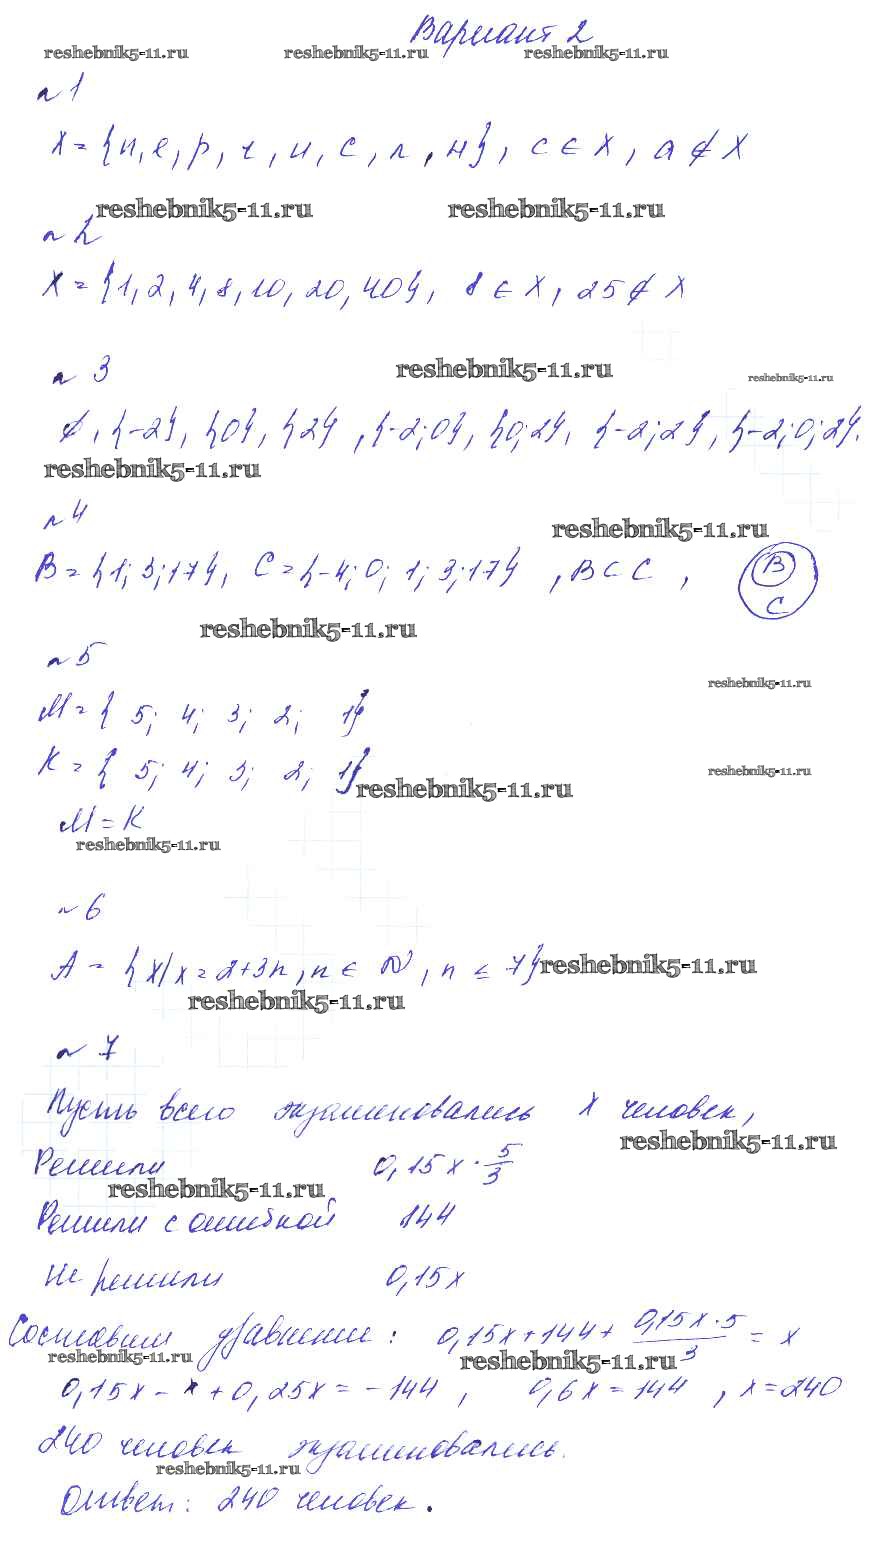 Вариант 2
reshebnik5-11.ru reshebnik5-11.ru reshebnik5-11.ru
№1
X = {п, е, р, ч, и, с, л, н}, с ∈ X, а ∉ X
reshebnik5-11.ru reshebnik5-11.ru
№2
X = {1, 2, 4, 8, 10, 20, 40}, 8 ∈ X, 25 ∉ X
№3
reshebnik5-11.ru reshebnik5-11.ru
∅, {-2}, {0}, {2}, {-2; 0}, {0; 2}, {-2; 2}, {-2; 0; 2}.
reshebnik5-11.ru
№4
reshebnik5-11.ru
B = {1; 3; 17}, C = {-4; 0; 1; 3; 17}, B ⊂ C, B C
reshebnik5-11.ru
№5
reshebnik5-11.ru
M = { 5; 4; 3; 2; 1}
K = { 5; 4; 3; 2; 1}
reshebnik5-11.ru
reshebnik5-11.ru
M = K
reshebnik5-11.ru
№6
A = {x/x = 2+3n, n ∈ N, n ≤ 7}
reshebnik5-11.ru
reshebnik5-11.ru
№7
Пусть всего экзаменовались x человек,
reshebnik5-11.ru
Решили 0,15x · 5/3
reshebnik5-11.ru
Решили с ошибкой 144
Не решили 0,15x
Составим уравнение: 0,15x + 144 + 0,15x · 5/3 = x
reshebnik5-11.ru reshebnik5-11.ru
0,15x - x + 0,25x = -144, 0,6x = 144, x = 240
240 человек экзаменовались.
reshebnik5-11.ru
Ответ: 240 человек.